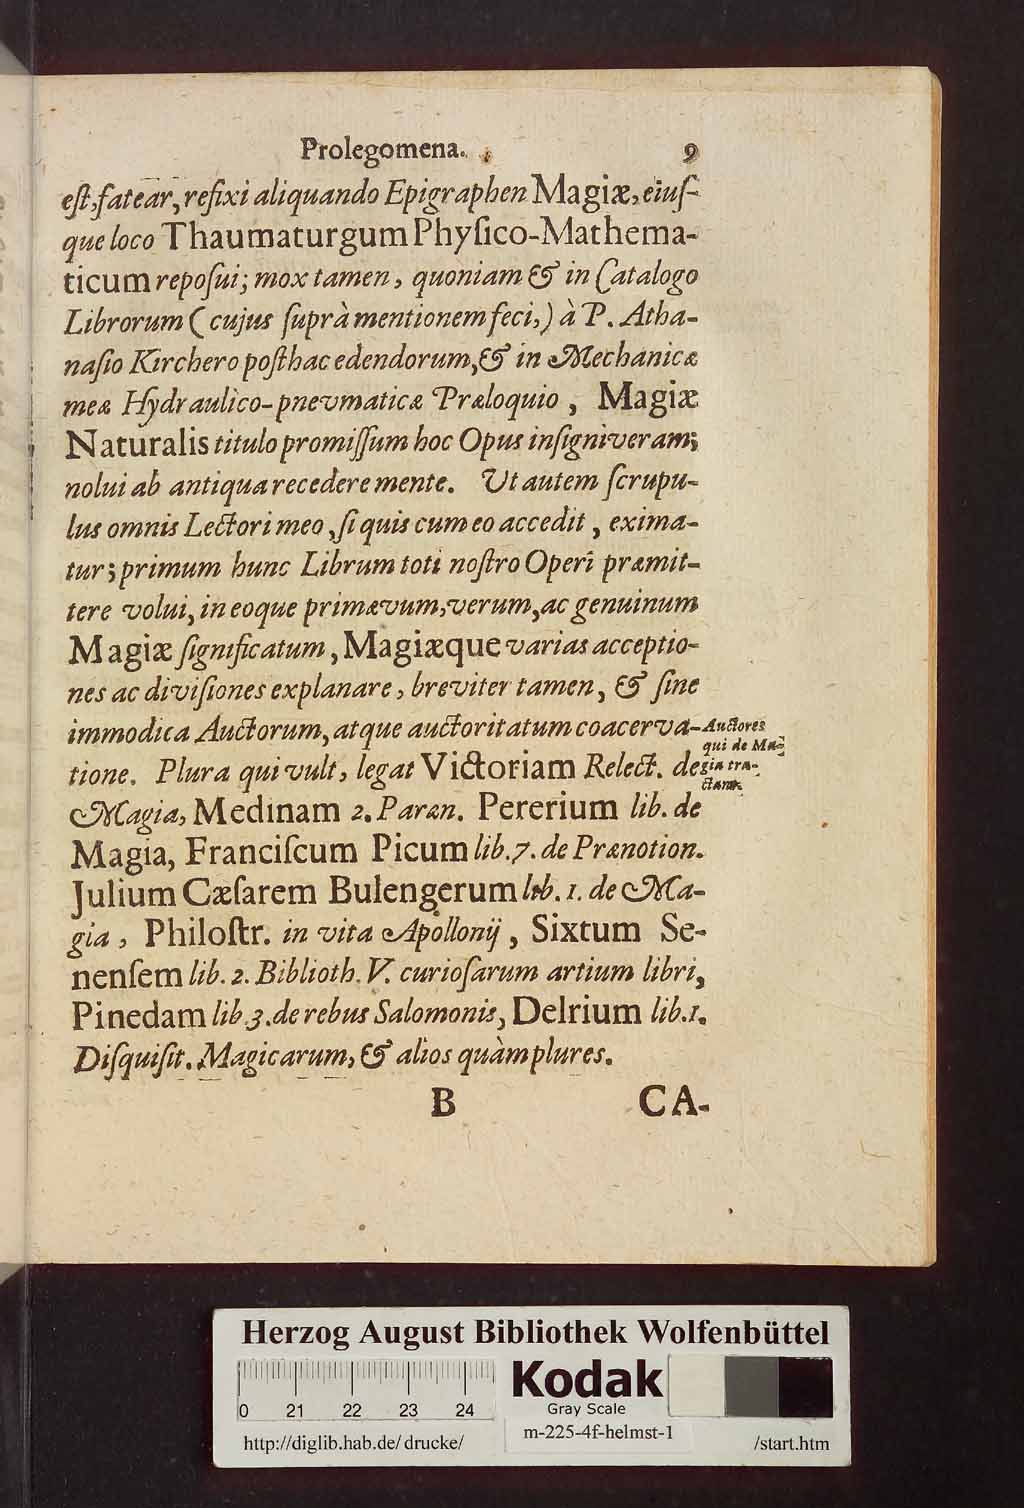 Prolegomena. 9
eſt, fatear, refixi aliquando Epigraphen Magiæ, eiuſ-
que loco Thaumaturgum Phyſico-Mathema-
ticum repoſui; mox tamen, quoniam & in Catalogo
Librorum (cujus ſuprà mentionem feci,) à P. Atha-
naſio Kirchero poſthac edendorum, & in Mechanicæ
meæ Hydraulico-pnevmaticæ Præloquio, Magiæ
Naturalis titulo promiſſum hoc Opus inſigniveram;
nolui ab antiqua recedere mente. Ut autem ſcrupu-
lus omnis Lectori meo, ſi quis cum eo accedit, exima-
tur; primum hunc Librum toti noſtro Operi præmit-
tere volui, in eoque primævum, verum, ac genuinum
Magiæ ſignificatum, Magiæque varias acceptio-
nes ac diviſiones explanare, breviter tamen, & ſine
immodica Auctorum, atque auctoritatum coacerva-
tione. Plura qui vult, legat Victoriam Relect. de
Magia, Medinam 2. Paræn. Pererium lib. de
Magia, Franciſcum Picum lib. 7. de Prænotion.
Julium Cæſarem Bulengerum lib. 1. de Ma-
gia, Philoſtr. in vita Apollonij, Sixtum Se-
nenſem lib. 2. Biblioth. V. curioſarum artium libri,
Pinedam lib. 3. de rebus Salomonis, Delrium lib. 1.
Diſquiſit. Magicarum, & alios quàm plures.
Auctores
qui de Ma-
gia tra-
ctant.
B CA-
Herzog August Bibliothek Wolfenbüttel
0 21 22 23 24
Kodak
Gray Scale
http://diglib.hab.de/drucke/
m-225-4f-helmst-1
/start.htm